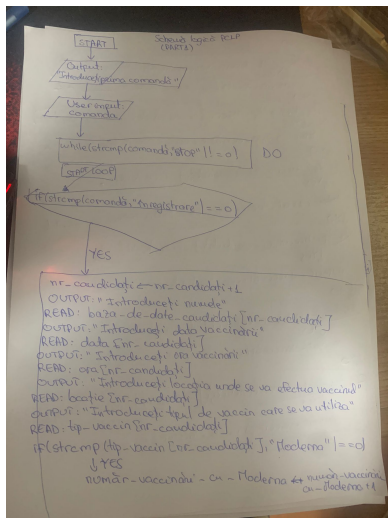 START
Schema logică PCLP
(PARTEA)
Output:
"Introduceți prima comandă"
User input
comanda
while(strcmp(comandă,"STOP")!=0) DO
START LOOP
if(strcmp(comandă,"inregistrare")==0)
YES
nr_candidați ← nr_candidați+1
OUTPUT: "Introduceți numele"
READ: baza-de-date_candidați[nr_candidați]
OUTPUT: "Introduceți data vaccinării"
READ: data[nr_candidați]
OUTPUT: "Introduceți ora vaccinării"
READ: ora[nr_candidați]
OUTPUT: "Introduceți locația unde se va efectua vaccinul"
READ: locație[nr_candidați]
OUTPUT: "Introduceți tipul de vaccin care se va utiliza"
READ: tip-vaccin[nr_candidați]
if(strcmp(tip-vaccin[nr_candidați],"Moderna")==0)
↓ YES
număr-vaccinări-cu-Moderna ← număr-vaccinări
cu-Moderna+1